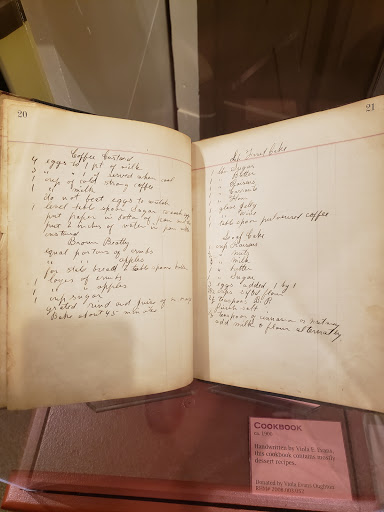 20
Coffee Custard
4 eggs to 1 pt of milk
3 " " 1 " if served when cold
1 cup of cold strong coffee
1 " " milk
do not beat eggs to much
1 level table spoon sugar to each egg
put paper in bottom of pan and
put 2 inches of water in pan with
custard
Brown Beatty
equal portions of crumbs
" " " apples
for stale bread 2 table spoons butter
1 layer of crumbs
1 " " apples
1 cup sugar
grated rind and juice of
Bake about 45 minutes
21
Lb Fruit Cake
1 lb Sugar
1 " Butter
1 " Raisins
1 " Currants
1 " Flour
1 glass jelly
1 " Wine
1 table spoon pulverized coffee
Loaf Cake
1 cup Raisins
" nuts
" Milk
" butter
" Sugar
3 eggs added 1 by 1
cups sifted flour
teaspoons B.P.
pinch salt
teaspoon of cinnamon & nutmeg
add milk & flour alternately
COOKBOOK
ca. 1900
Handwritten by Viola E. Evans,
this cookbook contains mostly
dessert recipes.
Donated by Viola Evans Oughton